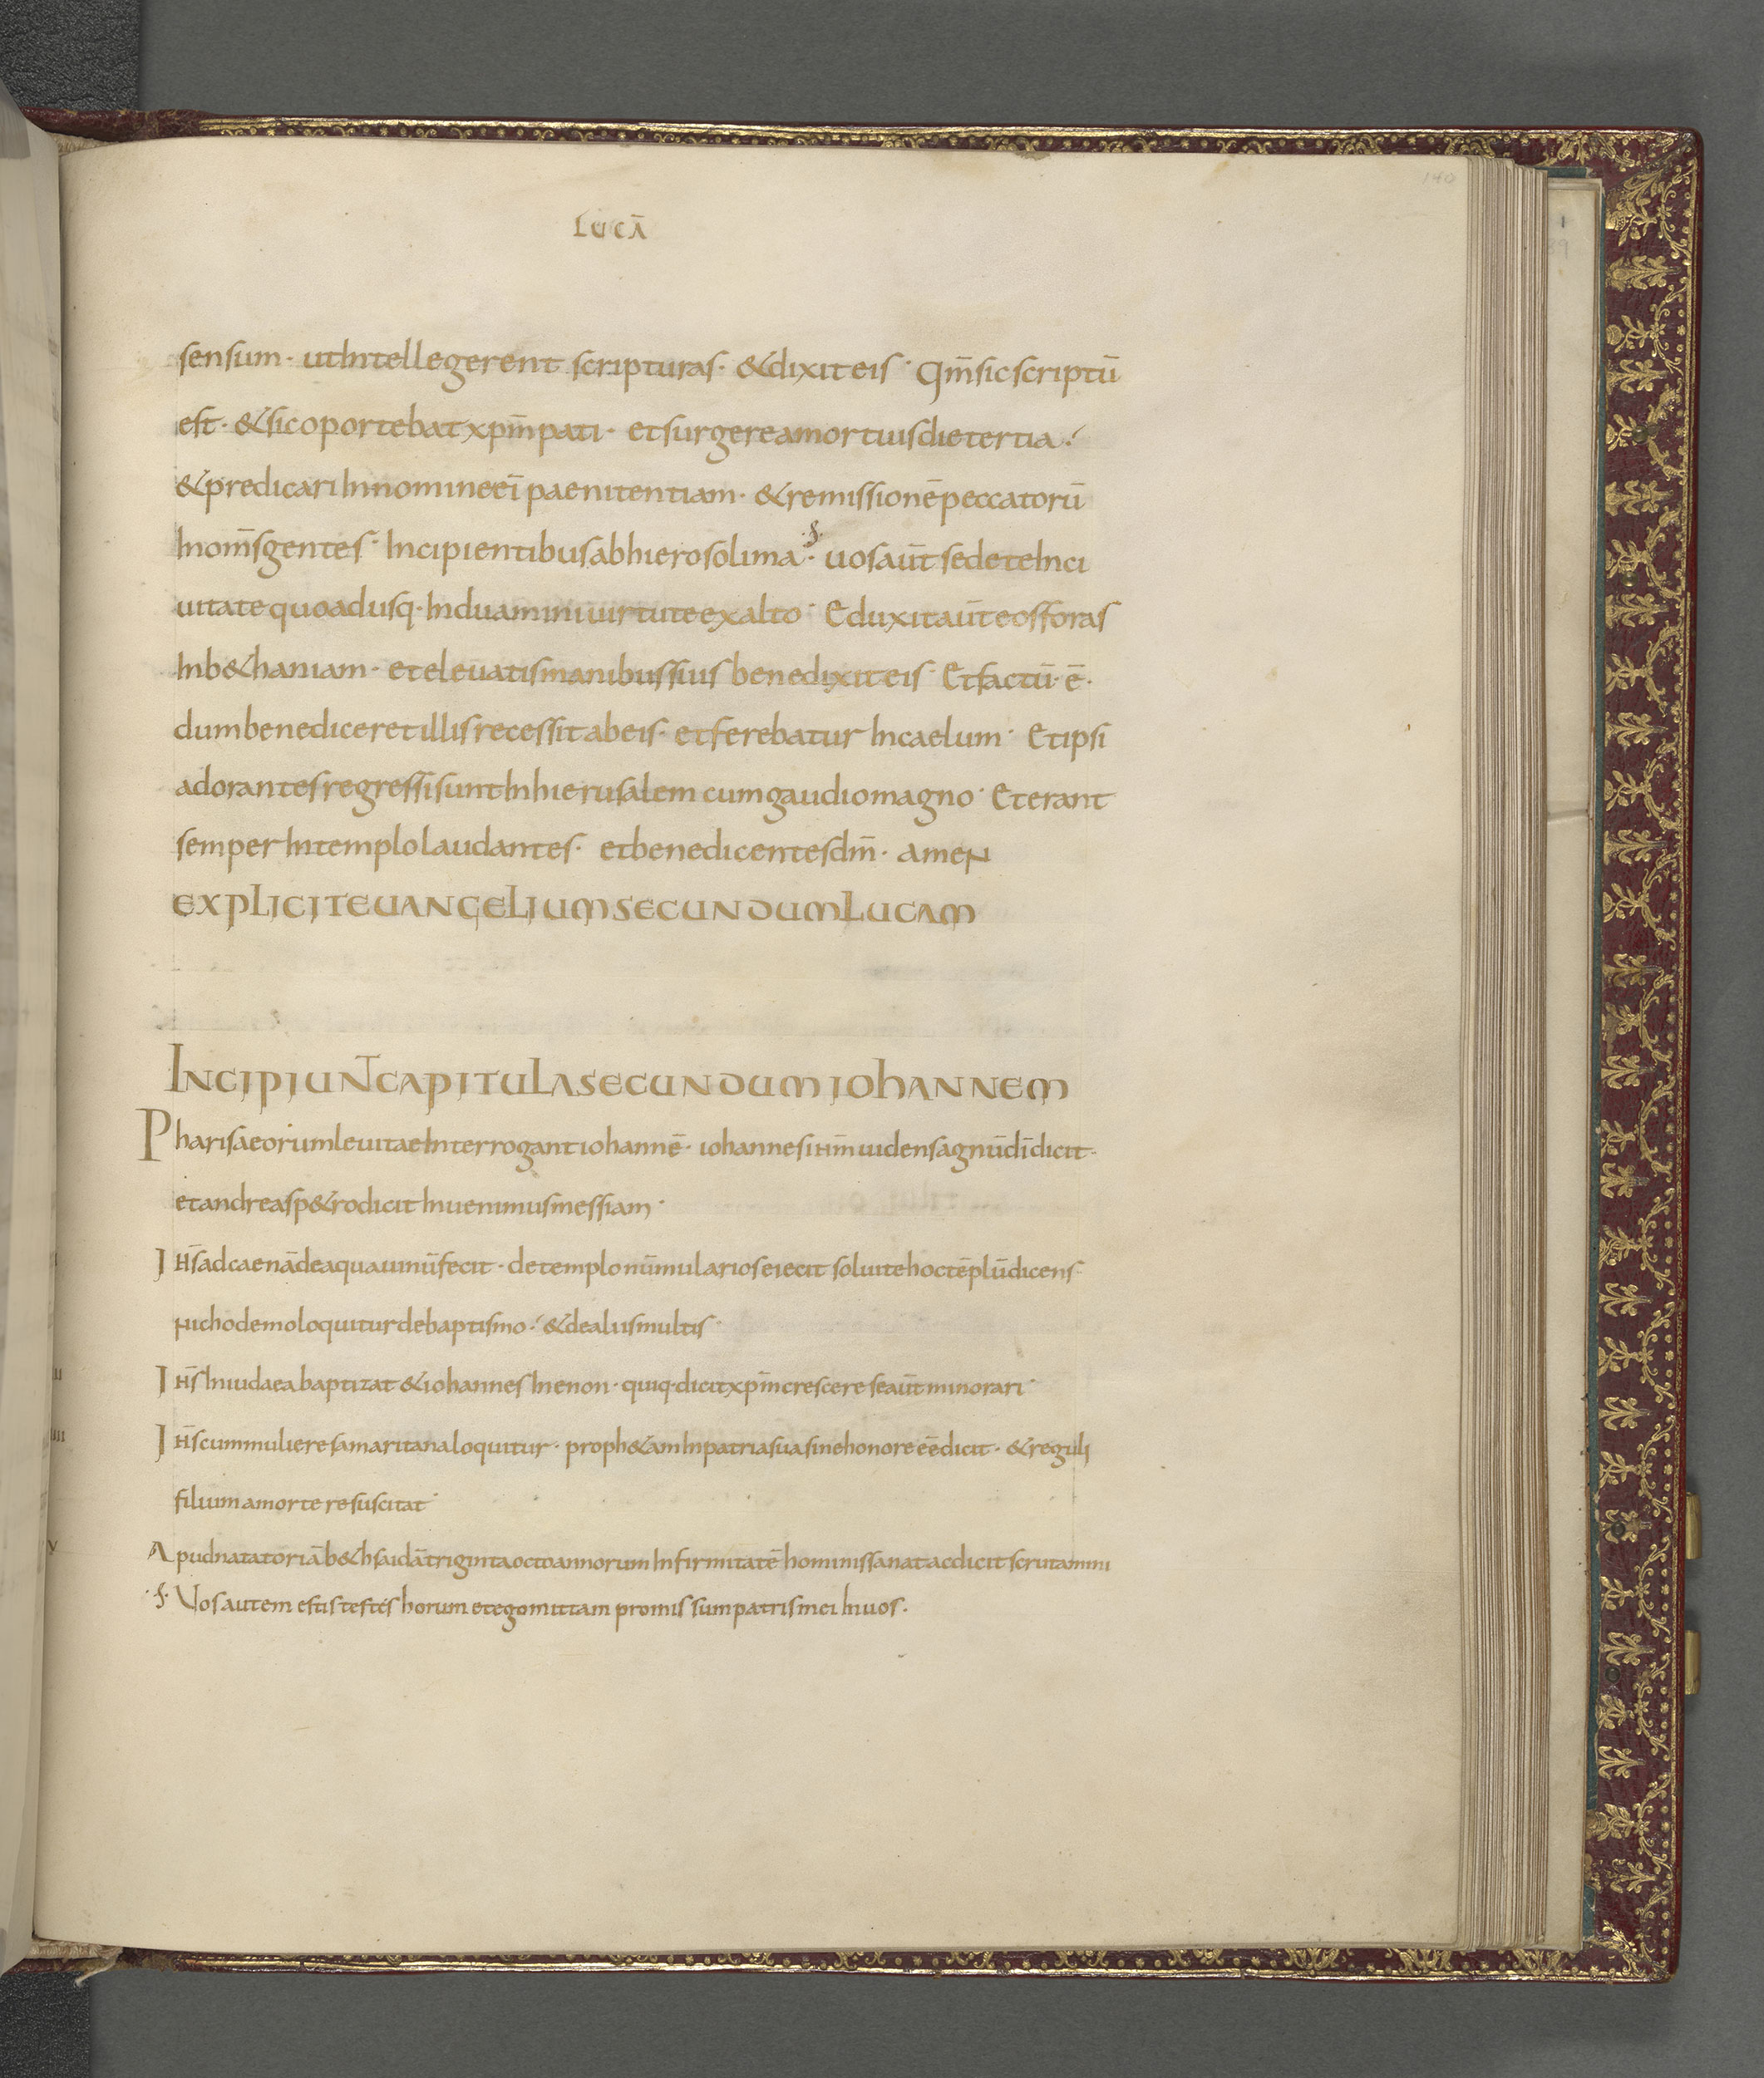 140
LUCĀ
sensum · ut intellegerent scripturas · & dixit eis · Qm̄ sic scriptū
est · & sic oportebat xpm̄ pati · et surgere a mortuis die tertia ·
& predicari in nomine ei᷒ paenitentiam · & remissionē peccatorū
In om̄s gentes · Incipientibus ab hierosolima · uos aūt sedete In ci
uitate quo adusq · Induamini uirtute ex alto · Eduxit aūt eos foras
In b&haniam · et eleuatis manibus suis benedixit eis · Et factū · ē ·
dum benediceret illis recessit ab eis · et ferebatur In caelum · Et ipsi
adorantes regressi sunt In hierusalem cum gaudio magno · Et erant
semper In templo laudantes · et benedicentes dm̄ · amen
EXPLICIT EUANGELIUM SECUNDUM LUCAM
INCIPIUNT CAPITULA SECUNDUM IOHANNEM
Pharisaeorum leuitae Interrogant iohannē · iohannes ihm̄ uidens agnū dī dicit ·
et andreas p&ro dicit Inuenimus messiam ·
I Ihs̄ ad caenā de aqua uinū fecit · de templo nūmularios eiecit soluite hoc tēplū dicens
nichodemo loquitur de baptismo · & de aliis multis
III Ihs̄ In iudaea baptizat & iohannes In enon · quiq · dicit xpm̄ crescere se aūt minorari ·
IIII Ihs̄ cum muliere samaritana loquitur · proph&am In patria sua sine honore eē dicit · & reguli
filium a morte resuscitat ·
V Apud natatoriā b&hsaidā triginta octo annorum Infirmitatē hominis sanat ac dicit scrutamini
Vos autem estis testes horum et ego mittam promissum patris mei In uos ·